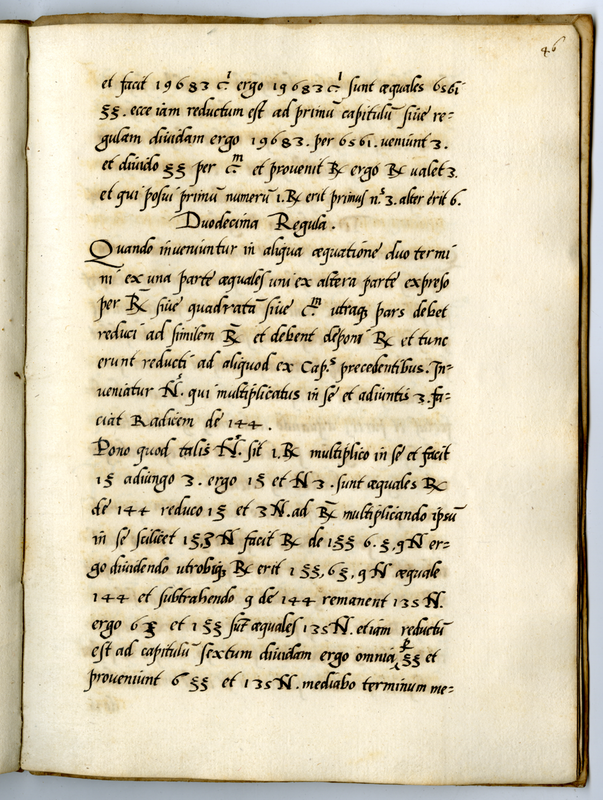 46
et facit 19683 c.ᶦ ergo 19683 c.ᶦ sunt æquales 6561
§§. ecce iam reductum est ad primũ capitulũ siue re=
gulam diuidam ergo 19683. per 6561. veniunt 3.
et diuido §§ per c.ᵐ et prouenit ℞ ergo ℞ valet 3.
et qui posui primũ numerũ 1.℞ erit primus n.ˢ 3. alter erit 6.
Duodecima Regula.
Quando inueniuntur in aliqua æquatione duo termi
ni ex una parte æquales uni ex altera parte expreso
per ℞ siue quadratã siue c.ᵐ utraq; pars debet
reduci ad similem ℞ et debent deponi ℞ et tunc
erunt reducti ad aliquod ex Cap.ˢ precedentibus. In=
ueniatur N.ˢ qui multiplicatus in se et adiuntis 3. fa=
ciat Radicem de 144.
Pono quod talis N.ˢ sit 1.℞ multiplico in se et facit
1§ adiungo 3. ergo 1§ et N 3. sunt æquales ℞
de 144 reduco 1§ et 3N. ad ℞ multiplicando ipsũ
in se scilicet 1§,3N facit ℞ de 1§§ 6.§,9N er=
go diuidendo utrobiq; ℞ erit 1§§,6§,9N æquale
144 et subtrahendo 9 de 144 remanent 135N.
ergo 6§ et 1§§ sũt æquales 135N. etiam reductũ
est ad capitulũ sextum diuidam ergo omnia p §§ et
proueniunt 6§§ et 135N. mediabo terminum me=